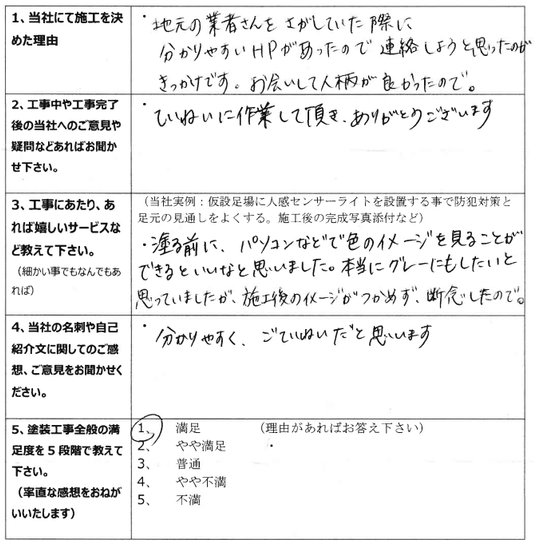 1、当社にて施工を決
めた理由
・地元の業者さんをさがしていた際に
分かりやすいHPがあったので連絡しようと思ったのが
きっかけです。お会いして人柄が良かったので。
2、工事中や工事完了
後の当社へのご意見や
疑問などあればお聞か
せ下さい。
・ていねいに作業して頂き、ありがとうございます
3、工事にあたり、あ
れば嬉しいサービスな
ど教えて下さい。
(細かい事でもなんでもあ
れば)
(当社実例:仮設足場に人感センサーライトを設置する事で防犯対策と
足元の見通しをよくする。施工後の完成写真添付など)
・塗る前に、パソコンなどで色のイメージを見ることが
できるといいなと思いました。本当にグレーにもしたいと
思っていましたが、施工後のイメージがつかめず、断念したので。
4、当社の名刺や自己
紹介文に関してのご感
想、ご意見をお聞かせく
ださい。
・分かりやすく、ごていねいだと思います
5、塗装工事全般の満
足度を5段階で教えて
下さい。
(率直な感想をおねが
いいたします)
1、 満足 (理由があればお答え下さい)
2、 やや満足 ・
3、 普通
4、 やや不満
5、 不満